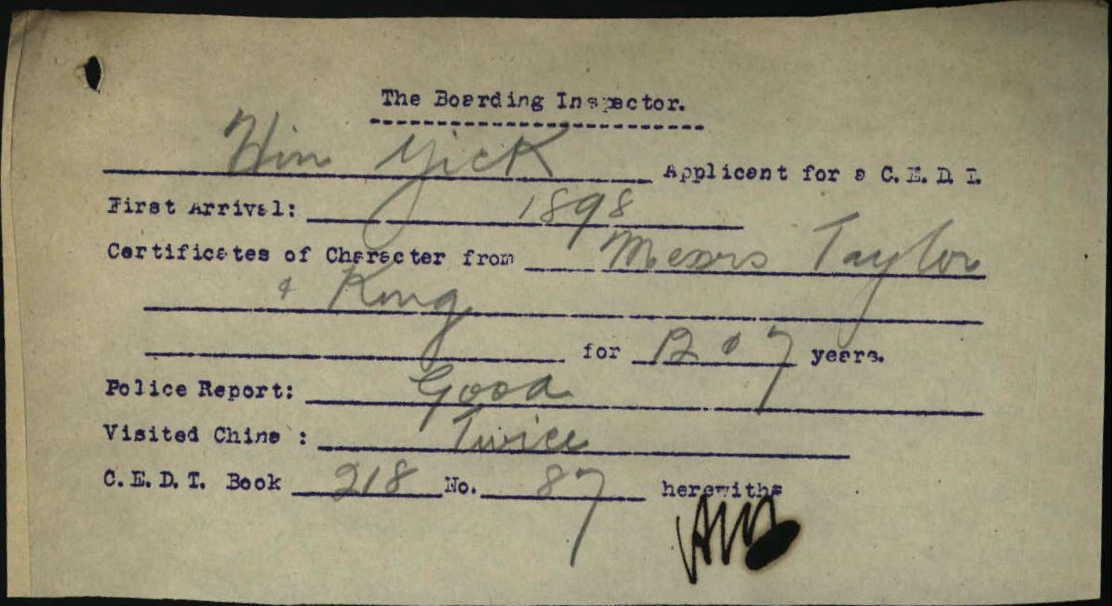 The Boarding Inspector.
Hin Yick Applicant for a C.E.D T.
First Arrival: 1898
Certificates of Character from Messrs Taylor
& King
for 12 & 7 years.
Police Report: Good
Visited China : Twice
C.E.D.T. Book 218 No. 87 herewith